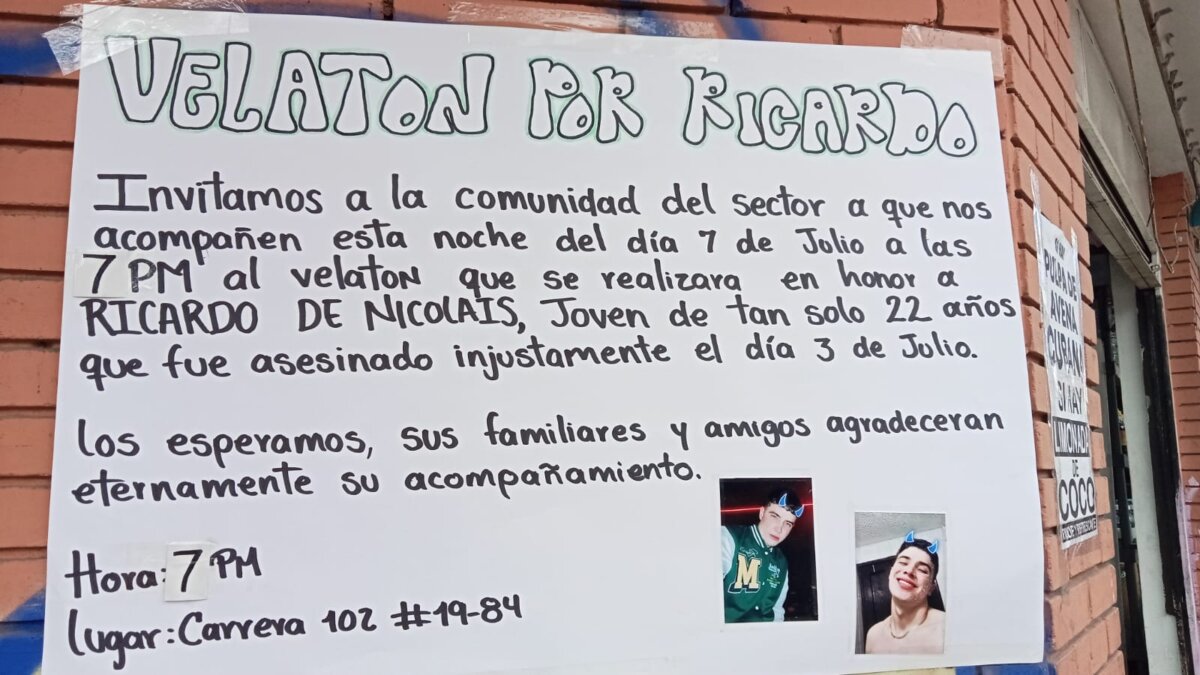 VELATON POR RICARDO
Invitamos a la comunidad del sector a que nos
acompañen esta noche del día 7 de Julio a las
7 PM al velaton que se realizara en honor a
RICARDO DE NICOLAIS, Joven de tan solo 22 años
que fue asesinado injustamente el día 3 de Julio.
los esperamos, sus familiares y amigos agradeceran
eternamente su acompañamiento.
Hora: 7 PM
lugar: Carrera 102 #19-84
M
PULPA DE
AVENA
CUBANA
SI HAY
LIMONADA
DE
COCO